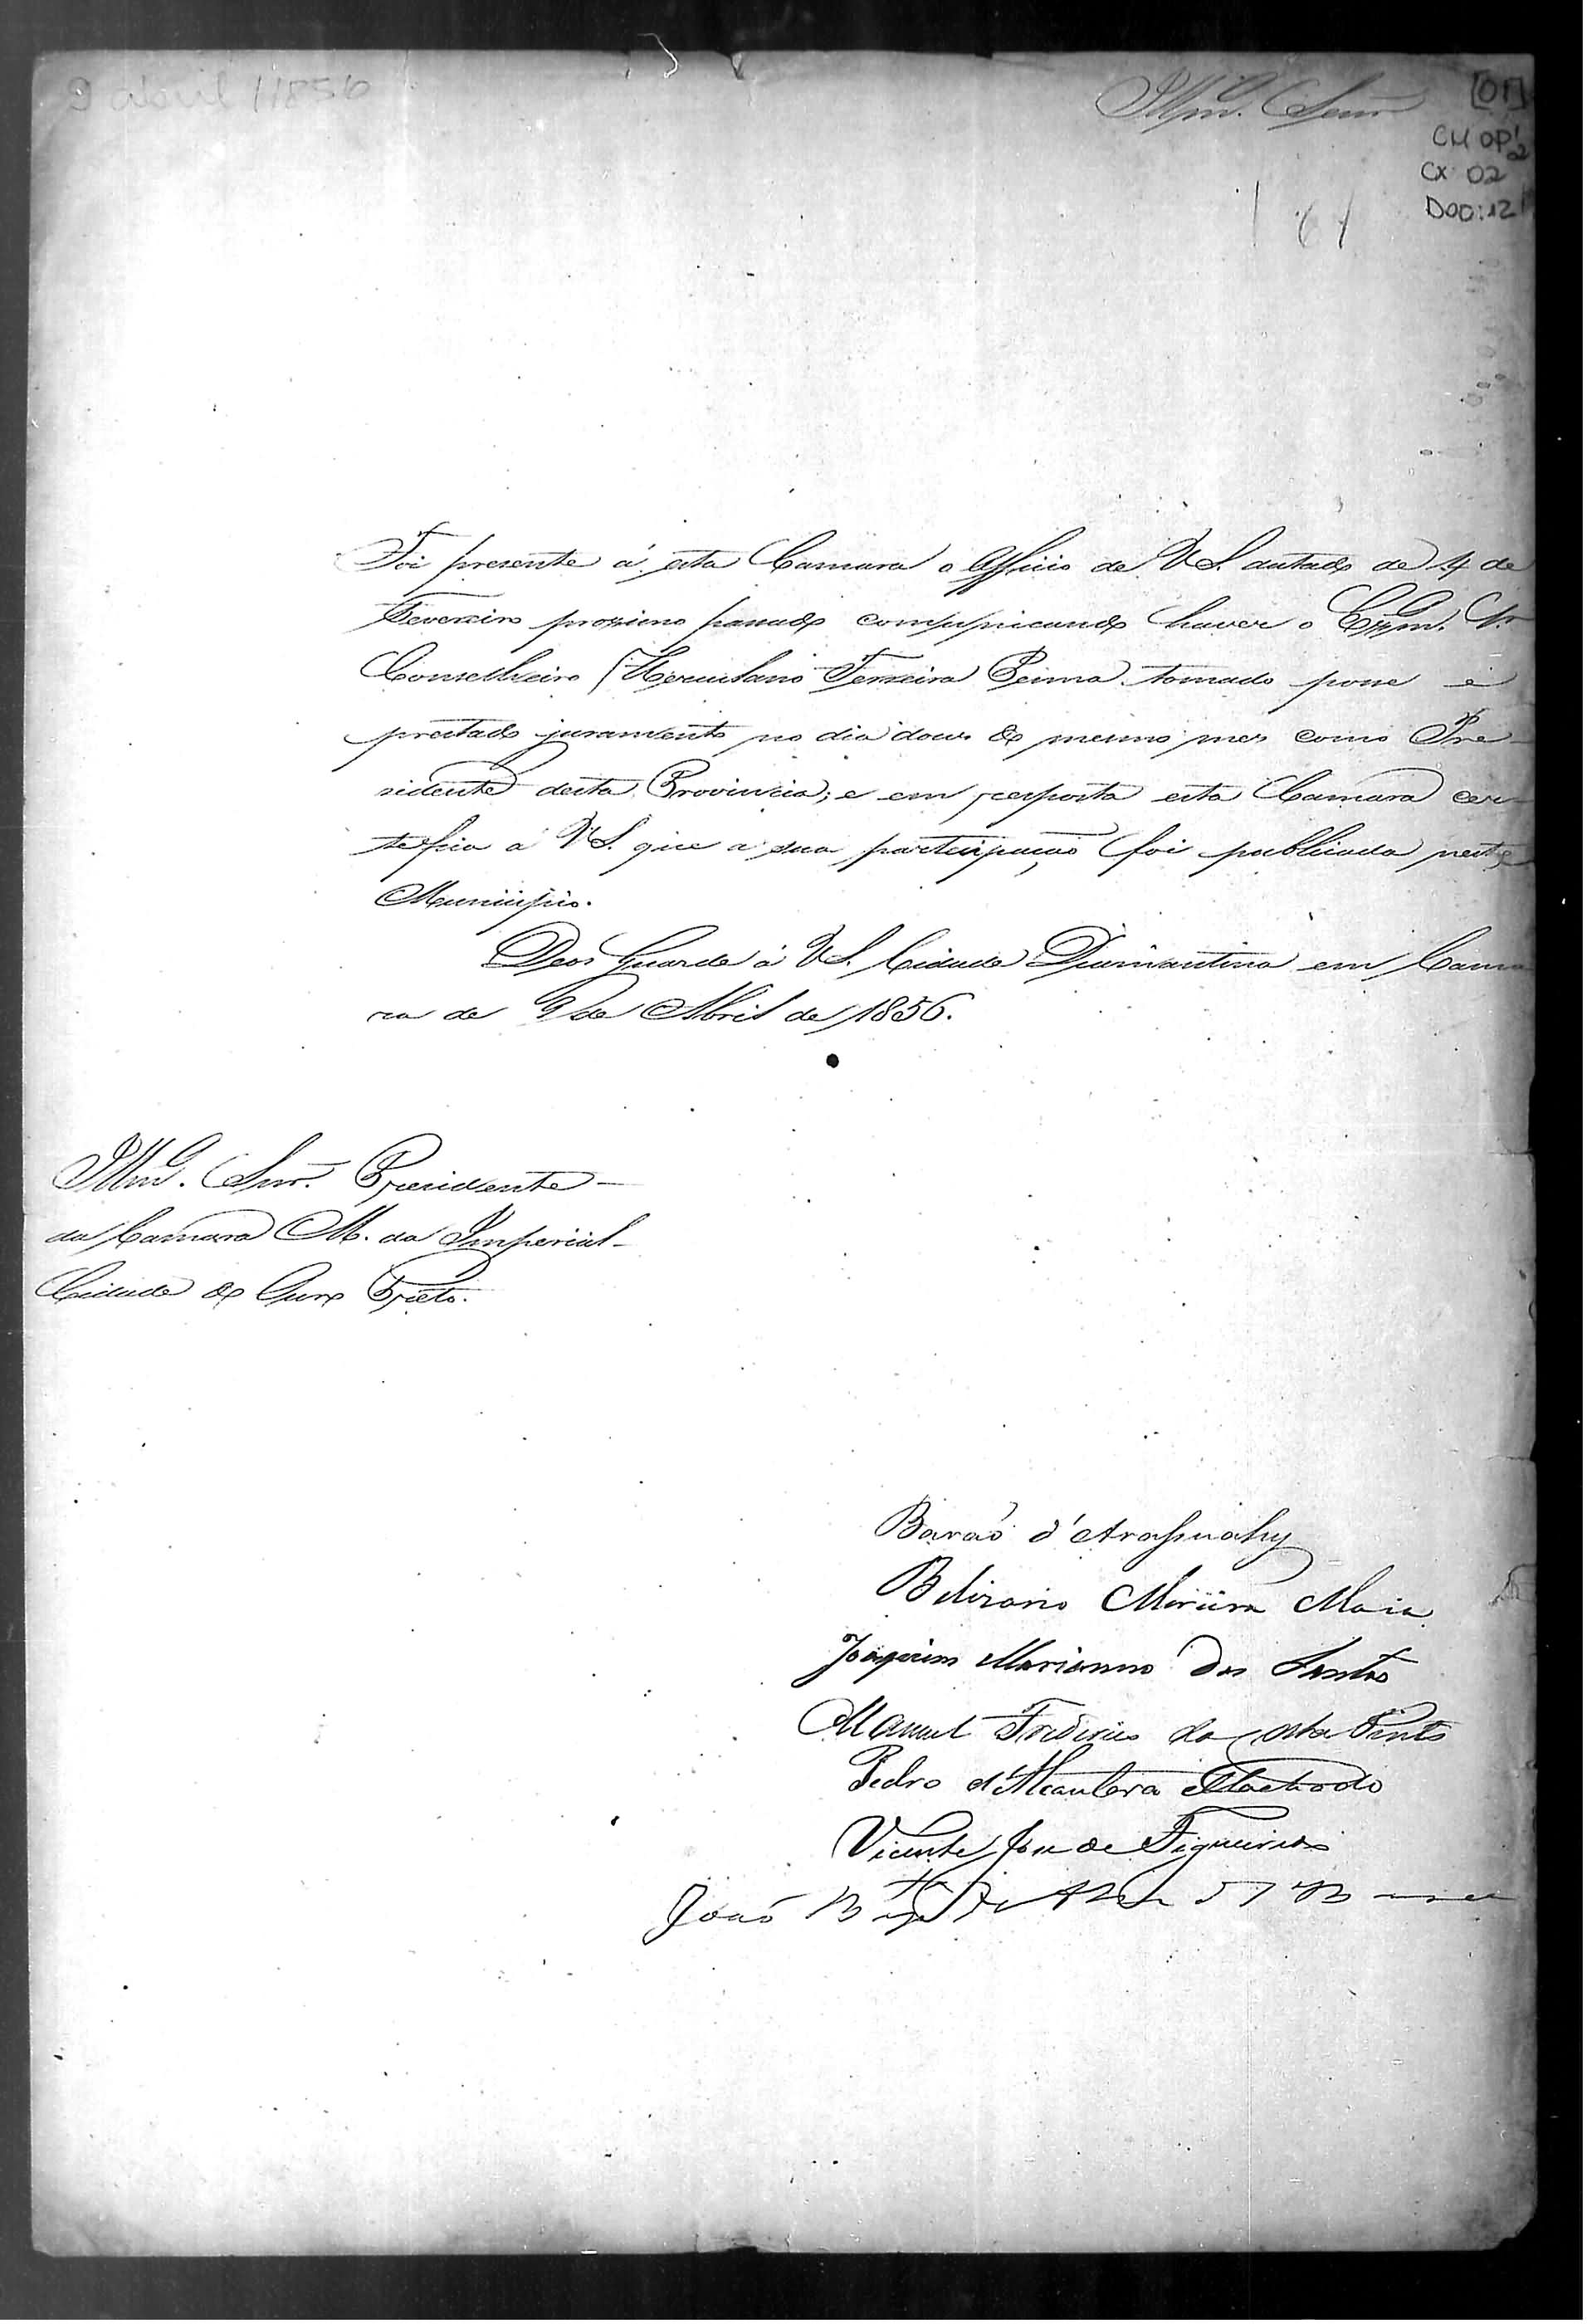 9 abril 1856
Illm. Senr.
[01]
CMOP 2
CX 02
DOC: 12
Foi presente á esta Camara o Officio de V.S. datado de 4 de
Fevereiro proximo passado communicando haver o Exm. Sr.
Conselheiro Herculano Ferreira Penna tomado posse e
prestado juramento no dia dous do mesmo mes como Pre-
sidente desta Provincia; e em resposta esta Camara cer-
tefica a V.S. que a sua participação foi publicada neste
Municipio.
Deos Guarde á V.S. Cidade Diamantina em Cama
ra de 9 de Abril de 1856.
Illm. Snr. Presidente
da Camara M. da Imperial
Cidade do Ouro Preto.
Barão d'Arassuahy
Belizario Maia
Joaquim Marianno dos Santos
Manuel da Costa Pinto
Pedro d'Alcantara Machado
Vicente José de Figueiredo
João